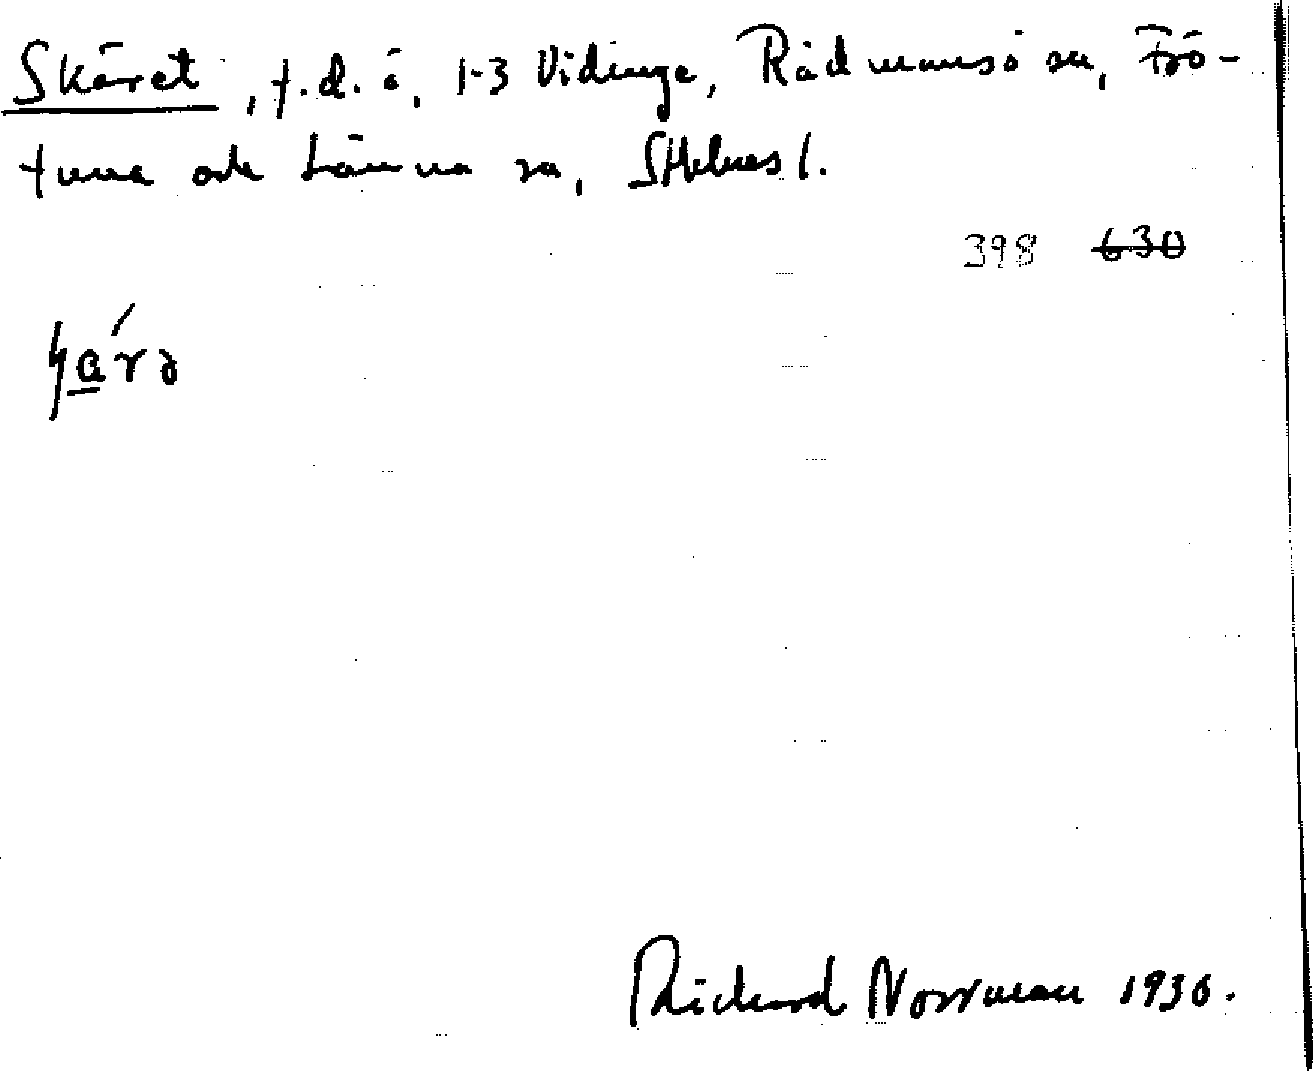 Skäret, f.d. ö, 1-3 Vidinge, Rådmansö sn, Frö-
tuna och Länna sn, Sthlms l.
398 630
Richard Norrman 1936.